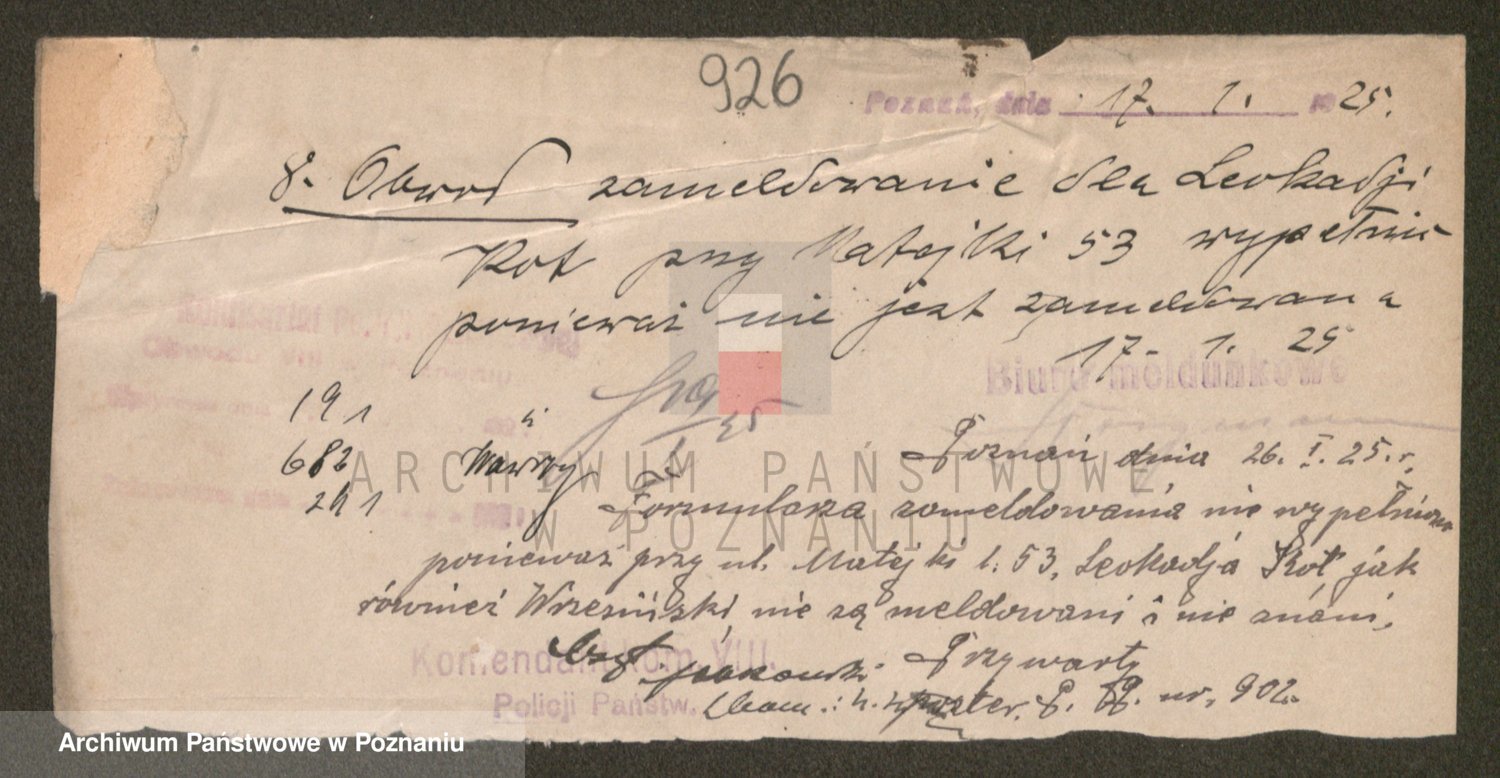 926
Poznań, dnia 17. 1. 1925.
8. Obwód zameldowanie dla Leokadji
Kot przy Matejki 53 wypełnić
ponieważ nie jest zameldowana
17. 1. 25
Biuro meldunkowe
19 1
682
29 1
Poznań dnia 26. I. 25. r.
Formularza zameldowania nie wypełniono
ponieważ przy ul. Matejki l. 53, Leokadja Kot jak
również Wrzesiński, nie są meldowani i nie znani,
Komendant kom. VIII.
Przywarty
Policji Państw.
poster. P. P. nr. 902.
ARCHIWUM PAŃSTWOWE
W POZNANIU
Archiwum Państwowe w Poznaniu